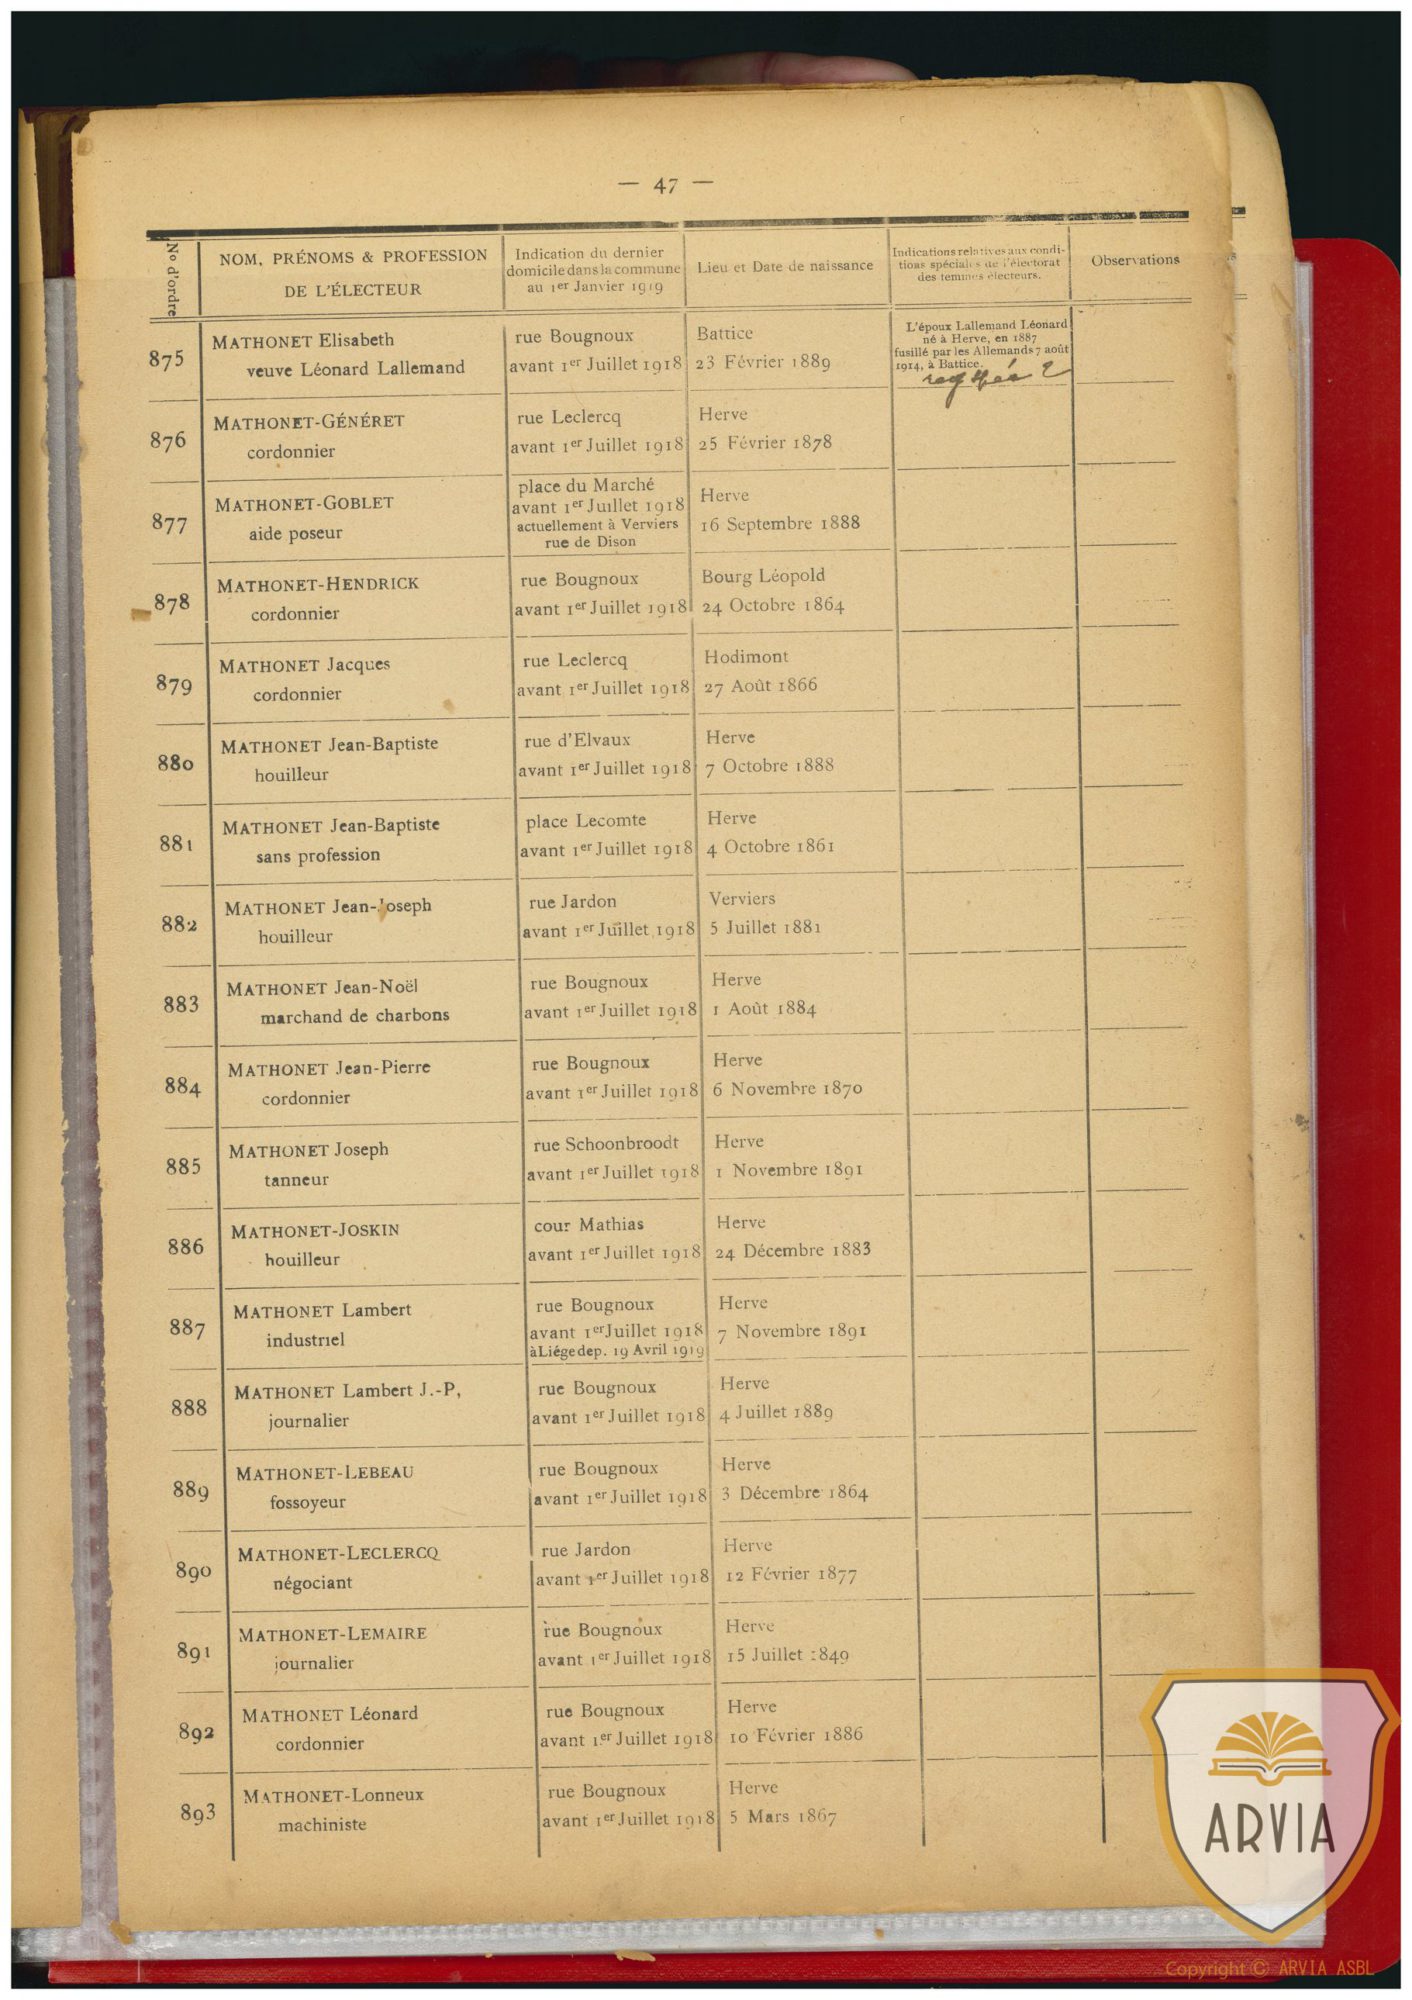 — 47 —
No d'ordre
NOM, PRÉNOMS & PROFESSION
DE L'ÉLECTEUR
Indication du dernier
domicile dans la commune
au 1er Janvier 1919
Lieu et Date de naissance
Indications relatives aux condi-
tions spéciales de l'électorat
des femmes électeurs.
Observations
875
MATHONET Elisabeth
veuve Léonard Lallemand
rue Bougnoux
avant 1er Juillet 1918
Battice
23 Février 1889
L'époux Lallemand Léonard
né à Herve, en 1887
fusillé par les Allemands 7 août
1914, à Battice.
876
MATHONET-GÉNÉRET
cordonnier
rue Leclercq
avant 1er Juillet 1918
Herve
25 Février 1878
877
MATHONET-GOBLET
aide poseur
place du Marché
avant 1er Juillet 1918
actuellement à Verviers
rue de Dison
Herve
16 Septembre 1888
878
MATHONET-HENDRICK
cordonnier
rue Bougnoux
avant 1er Juillet 1918
Bourg Léopold
24 Octobre 1864
879
MATHONET Jacques
cordonnier
rue Leclercq
avant 1er Juillet 1918
Hodimont
27 Août 1866
880
MATHONET Jean-Baptiste
houilleur
rue d'Elvaux
avant 1er Juillet 1918
Herve
7 Octobre 1888
881
MATHONET Jean-Baptiste
sans profession
place Lecomte
avant 1er Juillet 1918
Herve
4 Octobre 1861
882
MATHONET Jean-Joseph
houilleur
rue Jardon
avant 1er Juillet 1918
Verviers
5 Juillet 1881
883
MATHONET Jean-Noël
marchand de charbons
rue Bougnoux
avant 1er Juillet 1918
Herve
1 Août 1884
884
MATHONET Jean-Pierre
cordonnier
rue Bougnoux
avant 1er Juillet 1918
Herve
6 Novembre 1870
885
MATHONET Joseph
tanneur
rue Schoonbroodt
avant 1er Juillet 1918
Herve
1 Novembre 1891
886
MATHONET-JOSKIN
houilleur
cour Mathias
avant 1er Juillet 1918
Herve
24 Décembre 1883
887
MATHONET Lambert
industriel
rue Bougnoux
avant 1er Juillet 1918
à Liége dep. 19 Avril 1919
Herve
7 Novembre 1891
888
MATHONET Lambert J.-P,
journalier
rue Bougnoux
avant 1er Juillet 1918
Herve
4 Juillet 1889
889
MATHONET-LEBEAU
fossoyeur
rue Bougnoux
avant 1er Juillet 1918
Herve
3 Décembre 1864
890
MATHONET-LECLERCQ
négociant
rue Jardon
avant 1er Juillet 1918
Herve
12 Février 1877
891
MATHONET-LEMAIRE
journalier
rue Bougnoux
avant 1er Juillet 1918
Herve
15 Juillet 1849
892
MATHONET Léonard
cordonnier
rue Bougnoux
avant 1er Juillet 1918
Herve
10 Février 1886
893
MATHONET-Lonneux
machiniste
rue Bougnoux
avant 1er Juillet 1918
Herve
5 Mars 1867
ARVIA
Copyright © ARVIA ASBL